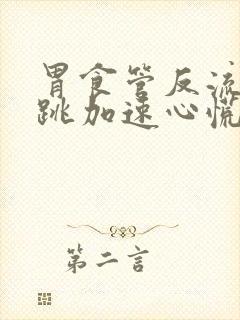 胃食管反流
跳加速心慌
第二言